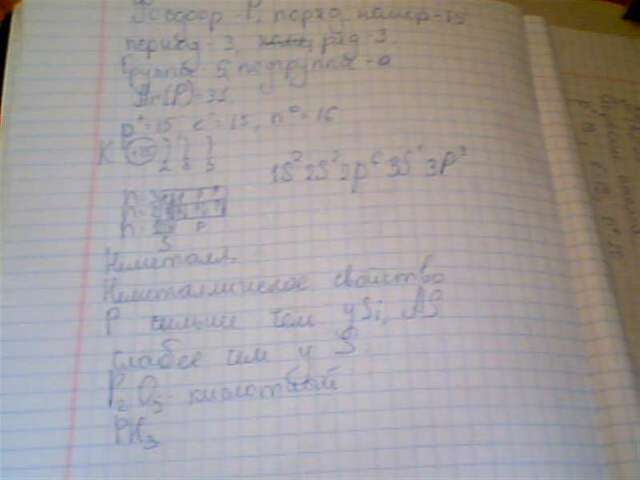 Фосфор - P, поряд. номер - 15
период - 3, ряд - 3
Группа 5, подгруппа - а
Ar(P)=31
p⁺=15, e⁻=15, n⁰=16
+15 ) ) )
2 8 5
1S² 2S² 2p⁶ 3S² 3p³
n=3
n=2
n=1
S
Неметалл.
Неметаллическое свойство
P сильнее чем у Si, AS
слабее чем у S
P₂O₅ - кислотный
PH₃